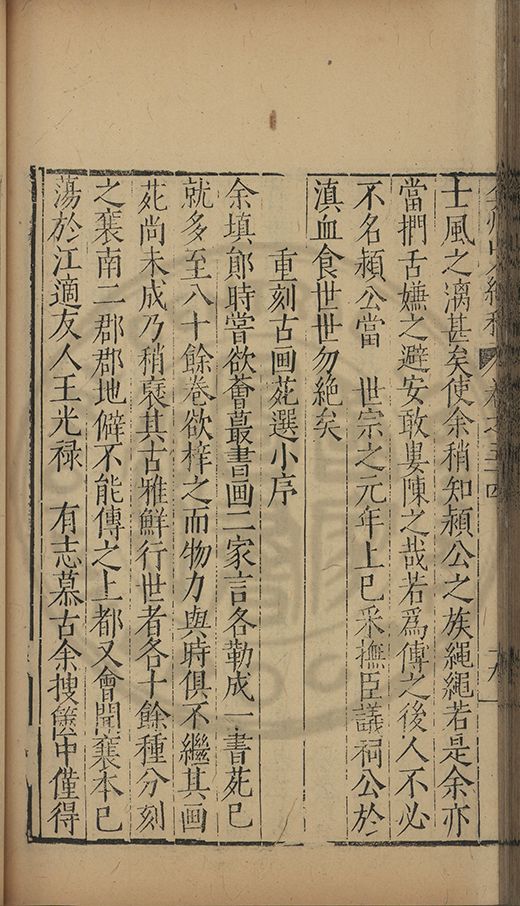 士風之漓甚矣使余稍知潁公之族繩繩若是余亦
當捫舌嫌之避安敢婁陳之哉若爲傳之後人不必
不名潁公當　世宗之元年上已采撫臣議祠公於
滇血食世世勿絶矣
重刻古画苑選小序
余填鄖時嘗欲薈蕞書画二家言各勒成一書苑已
就多至八十餘卷欲梓之而物力與時俱不繼其画
苑尚未成乃稍裒其古雅鮮行世者各十餘種分刻
之襄南二郡郡地僻不能傳之上都又會聞襄本已
蕩於江適友人王光禄　有志慕古余搜篋中僅得